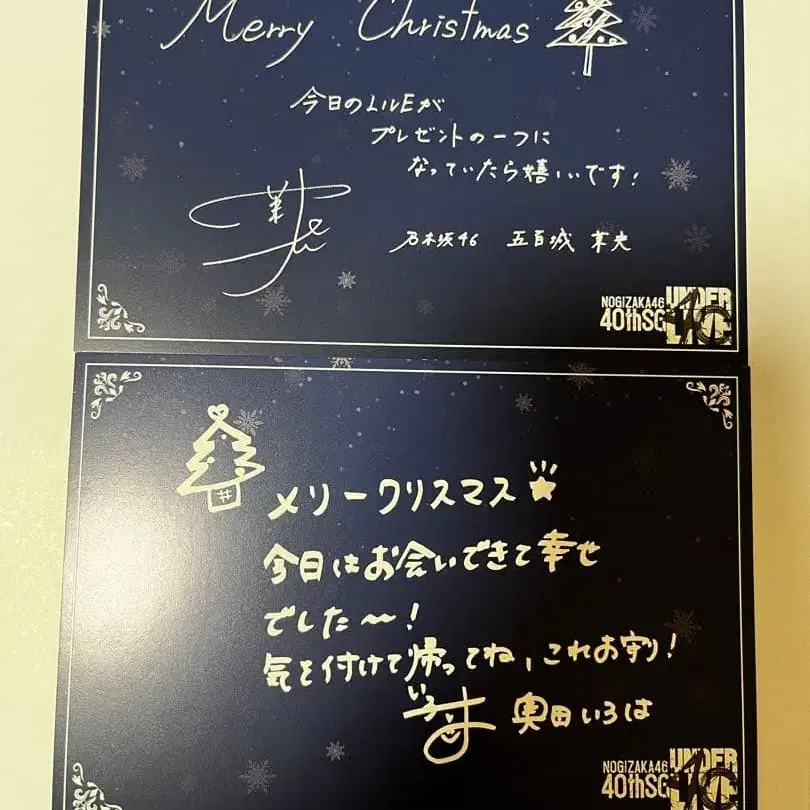 Merry Christmas
今日のLIVEが
プレゼントの一つに
なっていたら嬉しいです!
乃木坂46 五百城 茉央
NOGIZAKA46
40thSG
UNDER
LIVE
メリークリスマス
今日はお会いできて幸せ
でした〜!
気を付けて帰ってね、これお守り!
いろは
奥田いろは
NOGIZAKA46
40thSG
UNDER